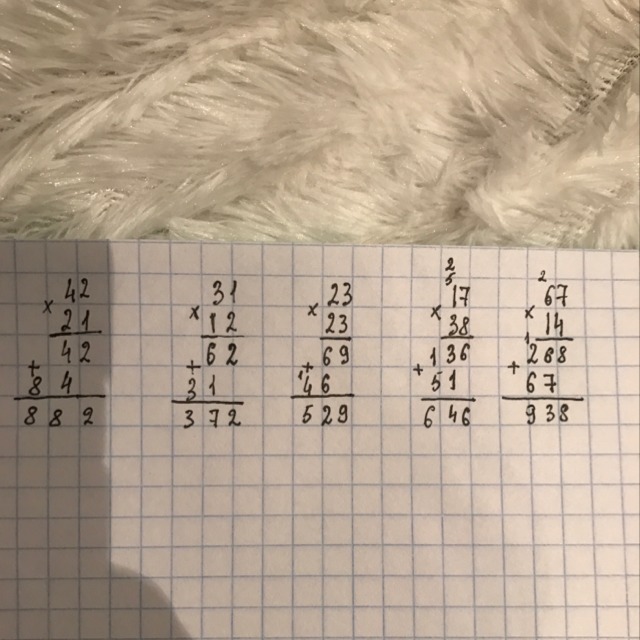 42
× 21
42
+ 84
882
31
× 12
62
+ 31
372
23
× 23
69
1 + 46
529
2
5
17
× 38
136
+ 51
646
2
67
× 14
1 268
+ 67
938